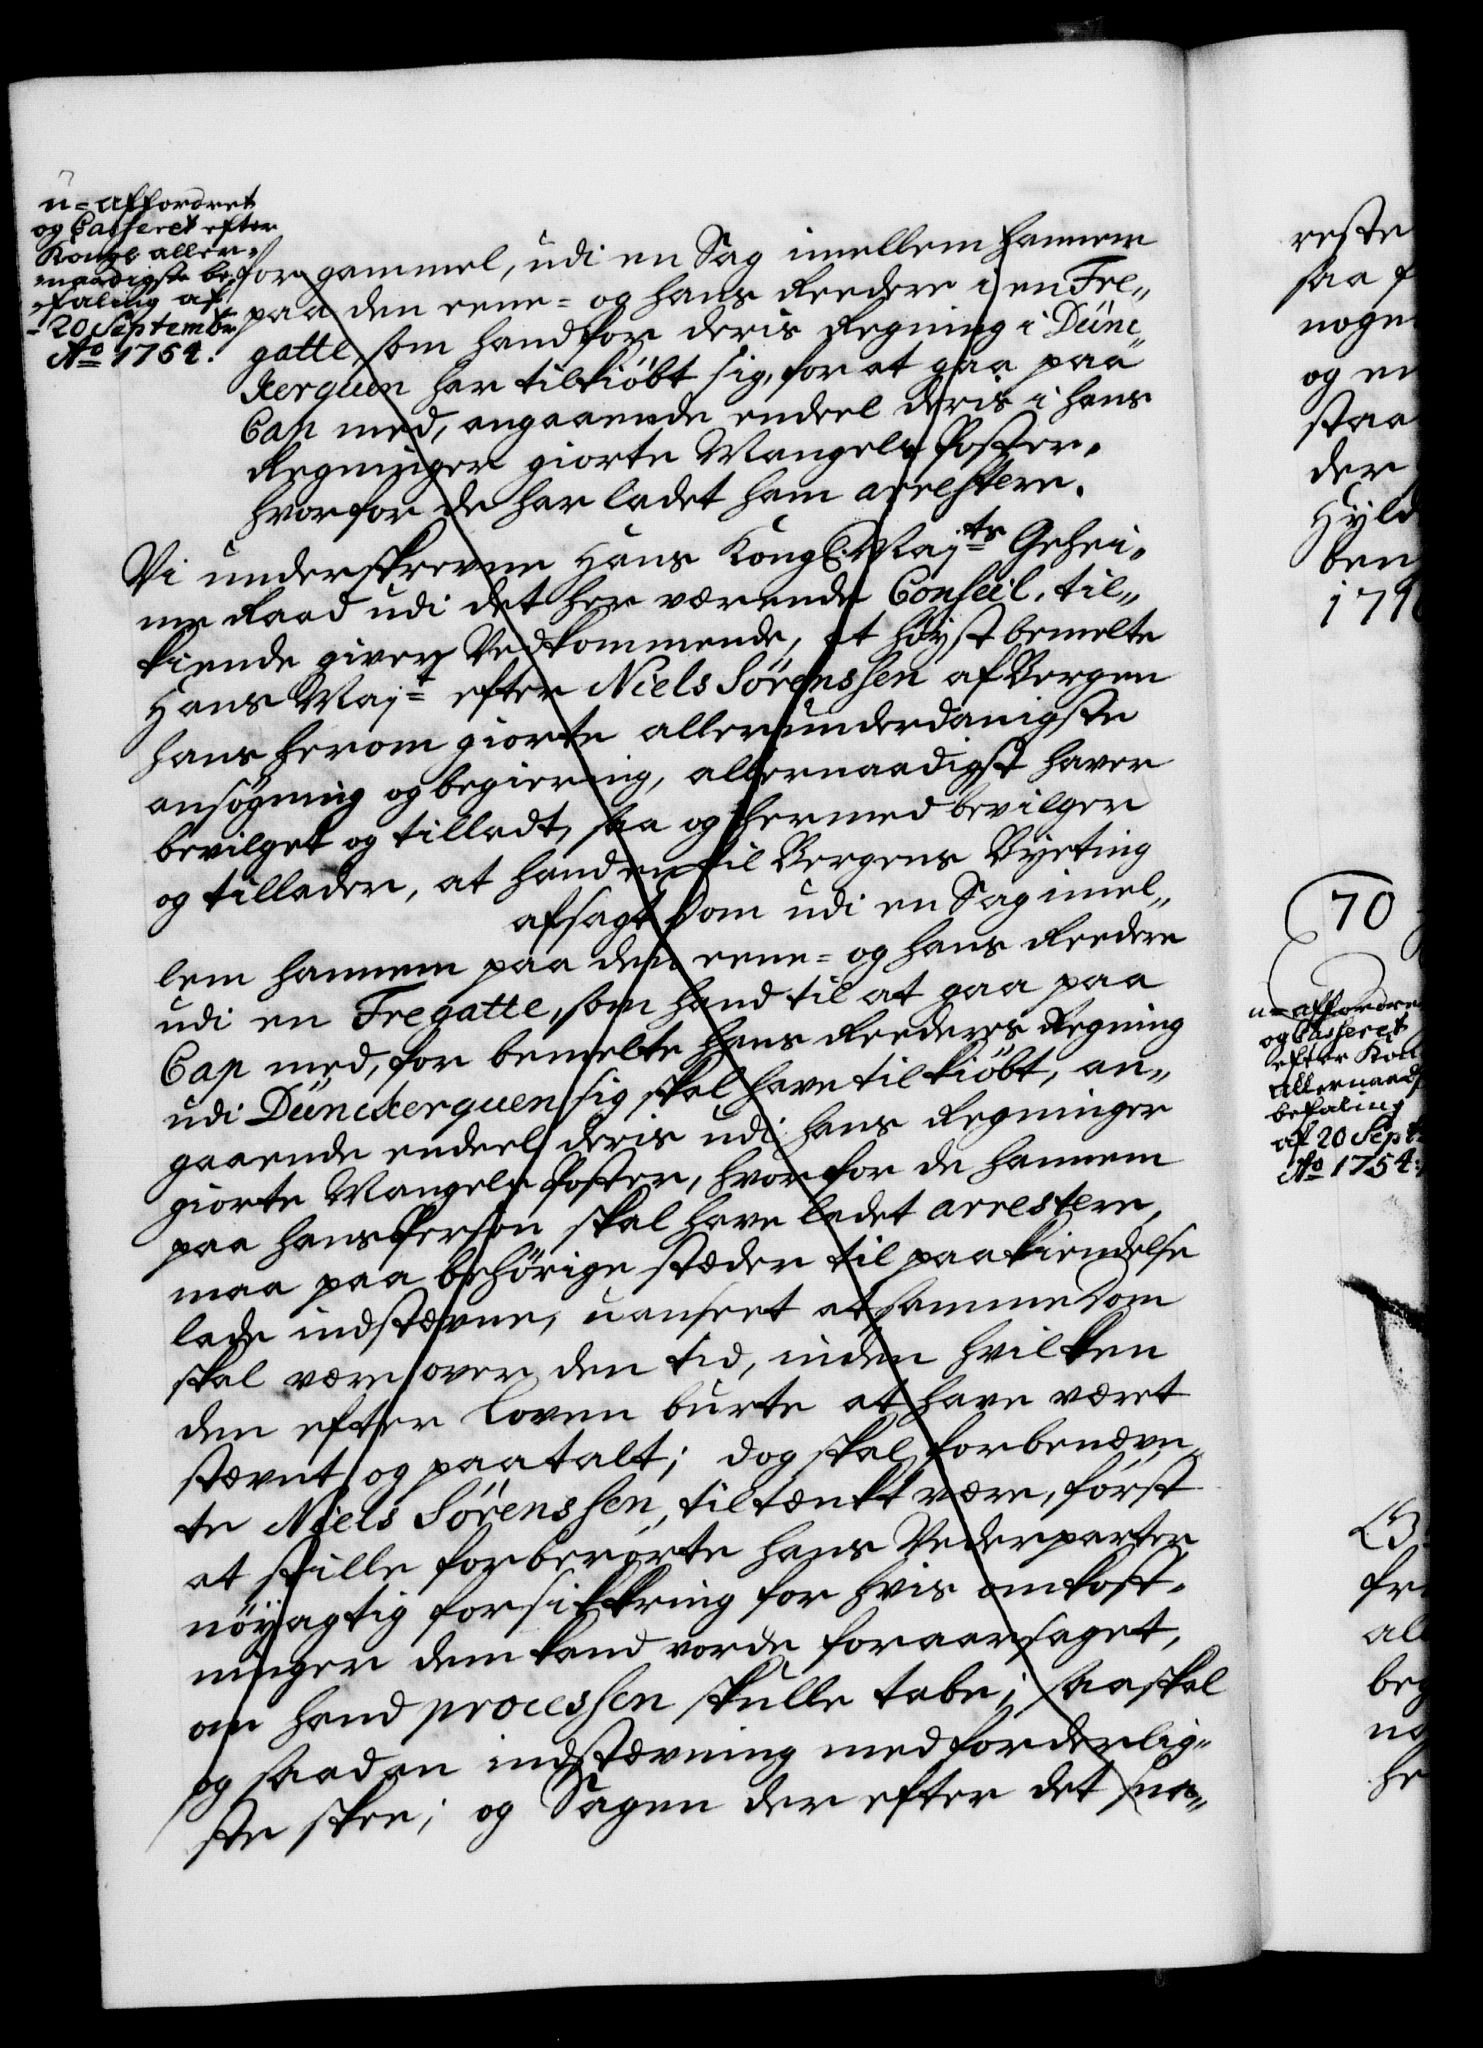 u-affordret
og Casseret efter
Kongl. aller-
naadigste be-
faling af
20 Septembr.
Ao 1754.
for gammel, udi en Sag imellem hannem
paa den eene- og hans Reedere i en Fre-
gatte, som hand for deris Regning i Dünc-
kerquen har tilkiöbt sig, for at gaa paa
Cap med, angaaende endeel deris i hans
Regninger giorte Mangels Poster,
hvorfor de har ladet ham arrestere.
Vi underskrevne Hans Kongl. Majts Gehei-
me Raad udi det her værende Conseil, til-
kiende giver Vedkommende, at höyst bemelte
Hans Majt efter Niels Sörenssen af Bergen
hans herom giorte allerunderdanigste
ansögning og begiering, allernaadigst haver
bevilget og tilladt, saa og hermed bevilger
og tillader, at hand en til Bergens Byeting
afsagt Dom udi en Sag imel-
lem hannem paa den eene- og hans Reedere
udi en Fregatte, som hand til at gaa paa
Cap med, for bemelte hans Reederes Regning
udi Dünckerquen sig skal have tilkiöbt, an-
gaaende endeel deris udi hans Regninger
giorte Mangels Poster, hvorfor de hannem
paa hans Person skal have ladet arrestere,
maa paa behörige stæder til paakiendelse
lade indstævne, uanseet at samme Dom
skal være over den tid, inden hvilken
den efter Loven burte at have været
stævnt og paatalt; dog skal forbenævn-
te Niels Sörenssen, tiltænkt være, först
at stille forberörte hans Vederparter
nöyagtig forsikkring for hvis omkost-
ninger dem kand vorde foraarsaget,
om hand processen skulle tabe; saa skal
og saadan indstævning med forderlig-
ste skee; og Sagen der efter det sna-
reste
saa f
noge
og en
staa
der
Hyld
ben
70
u-affordre
og Casseret
efter Kon
allernaad
befaling
af 20 Sept
Ao 1754.
fr
al
beg
no
he